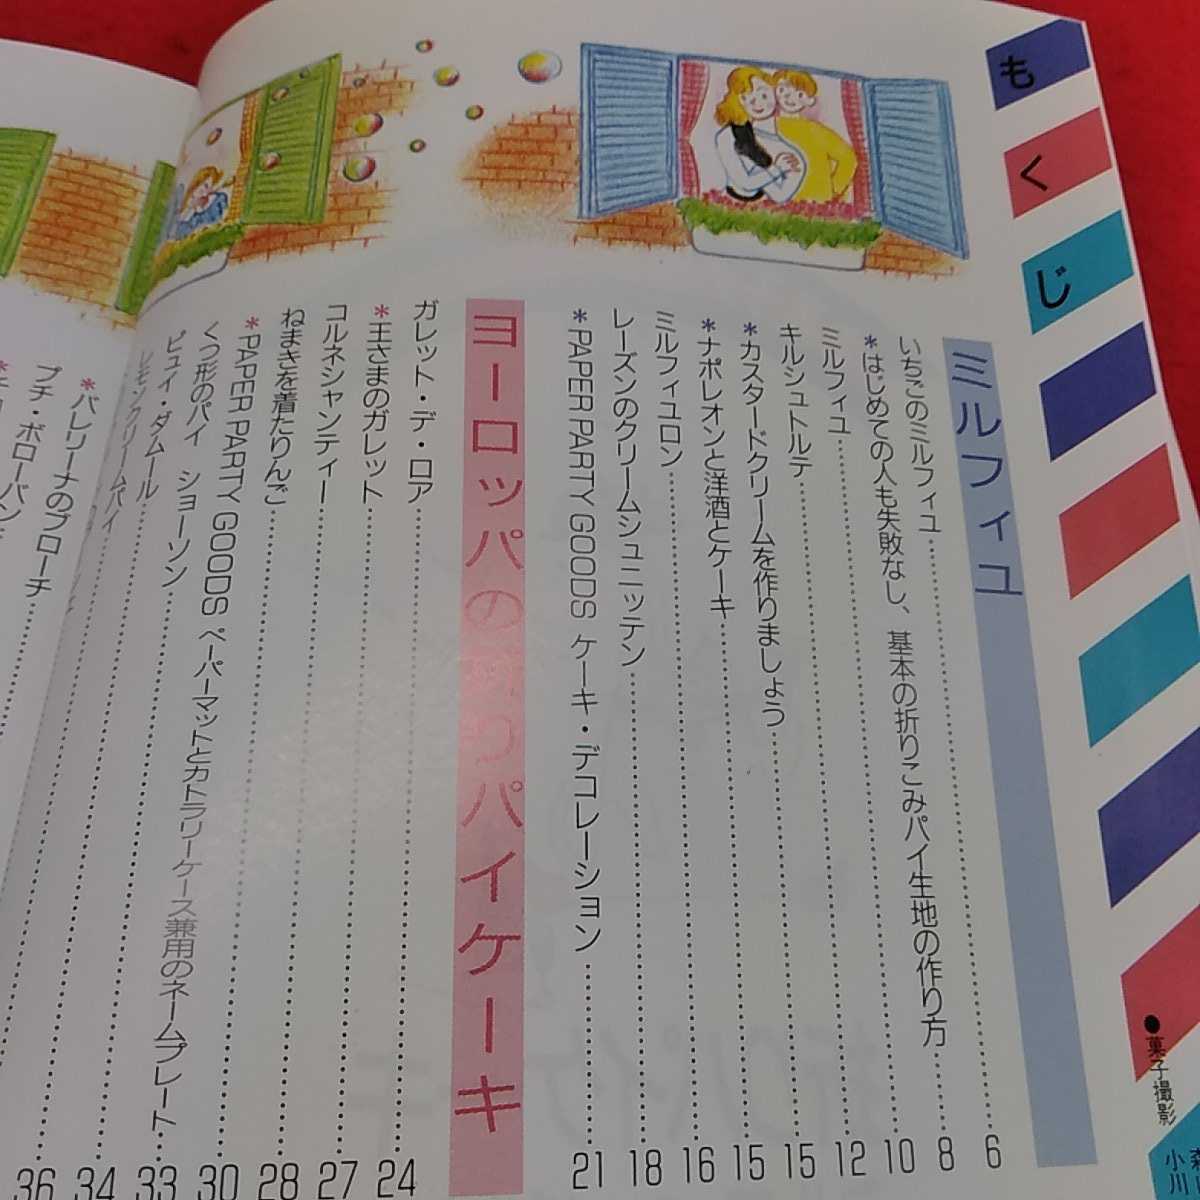 もくじ
ミルフィユ
いちごのミルフィユ……6
*はじめての人も失敗なし、基本の折りこみパイ生地の作り方……8
ミルフィユ……10
キルシュトルテ……12
*カスタードクリームを作りましょう……15
*ナポレオンと洋酒とケーキ……15
ミルフィユロン……16
レーズンのクリームシュニッテン……18
*PAPER PARTY GOODS ケーキ・デコレーション……21
ヨーロッパの折りパイケーキ
ガレット・デ・ロア……24
*王さまのガレット……27
コルネシャンティー……28
ねまきを着たりんご……30
*PAPER PARTY GOODS ペーパーマットとカトラリーケース兼用のネームプレート……33
くつ形のパイ ショーソン……34
ピュイ・ダムール……36
レモンクリームパイ
*バレリーナのブローチ
プチ・ボローバン
●菓子撮影
小川